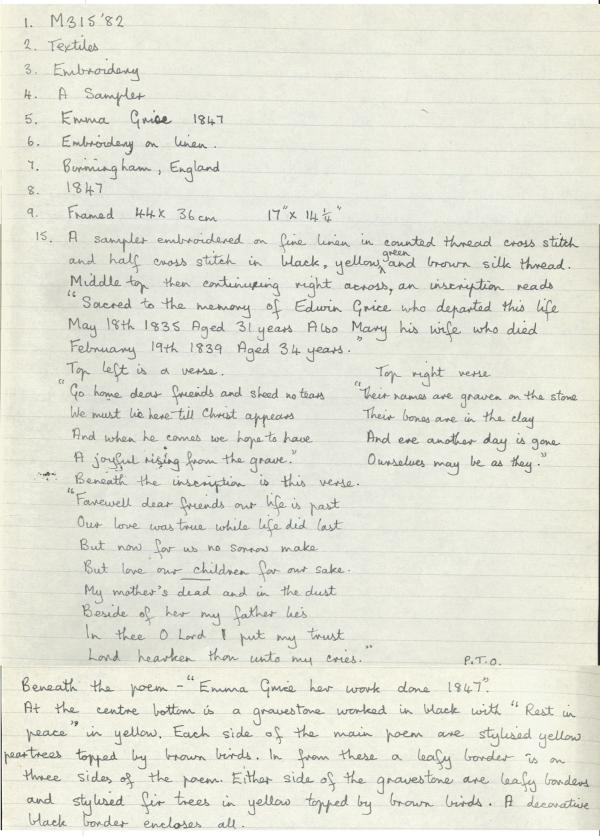 1. M315'82
2. Textiles
3. Embroidery
4. A Sampler
5. Emma Grice 1847
6. Embroidery on linen.
7. Birmingham, England
8. 1847
9. Framed 44 x 36 cm 17" x 14 1/4"
15. A sampler embroidered on fine linen in counted thread cross stitch
and half cross stitch in black, yellow, green and brown silk thread.
Middle top then continuing right across, an inscription reads
"Sacred to the memory of Edwin Grice who departed this life
May 18th 1835 Aged 31 years Also Mary his wife who died
February 19th 1839 Aged 34 years."
Top left is a verse. Top right verse
"Go home dear friends and shed no tears "Their names are graven on the stone
We must lie here till Christ appears Their bones are in the clay
And when he comes we hope to have And ere another day is gone
A joyful rising from the grave." Ourselves may be as they."
Beneath the inscription is this verse.
"Farewell dear friends our life is past
Our love was true while life did last
But now for us no sorrow make
But love our children for our sake.
My mother's dead and in the dust
Beside of her my father lies
In thee O Lord I put my trust
Lord hearken thou unto my cries." P.T.O.
Beneath the poem - "Emma Grice her work done 1847".
At the centre bottom is a gravestone worked in black with "Rest in
peace" in yellow. Each side of the main poem are stylised yellow
peartrees topped by brown birds. In from these a leafy border is on
three sides of the poem. Either side of the gravestone are leafy borders
and stylised fir trees in yellow topped by brown birds. A decorative
black border encloses all.